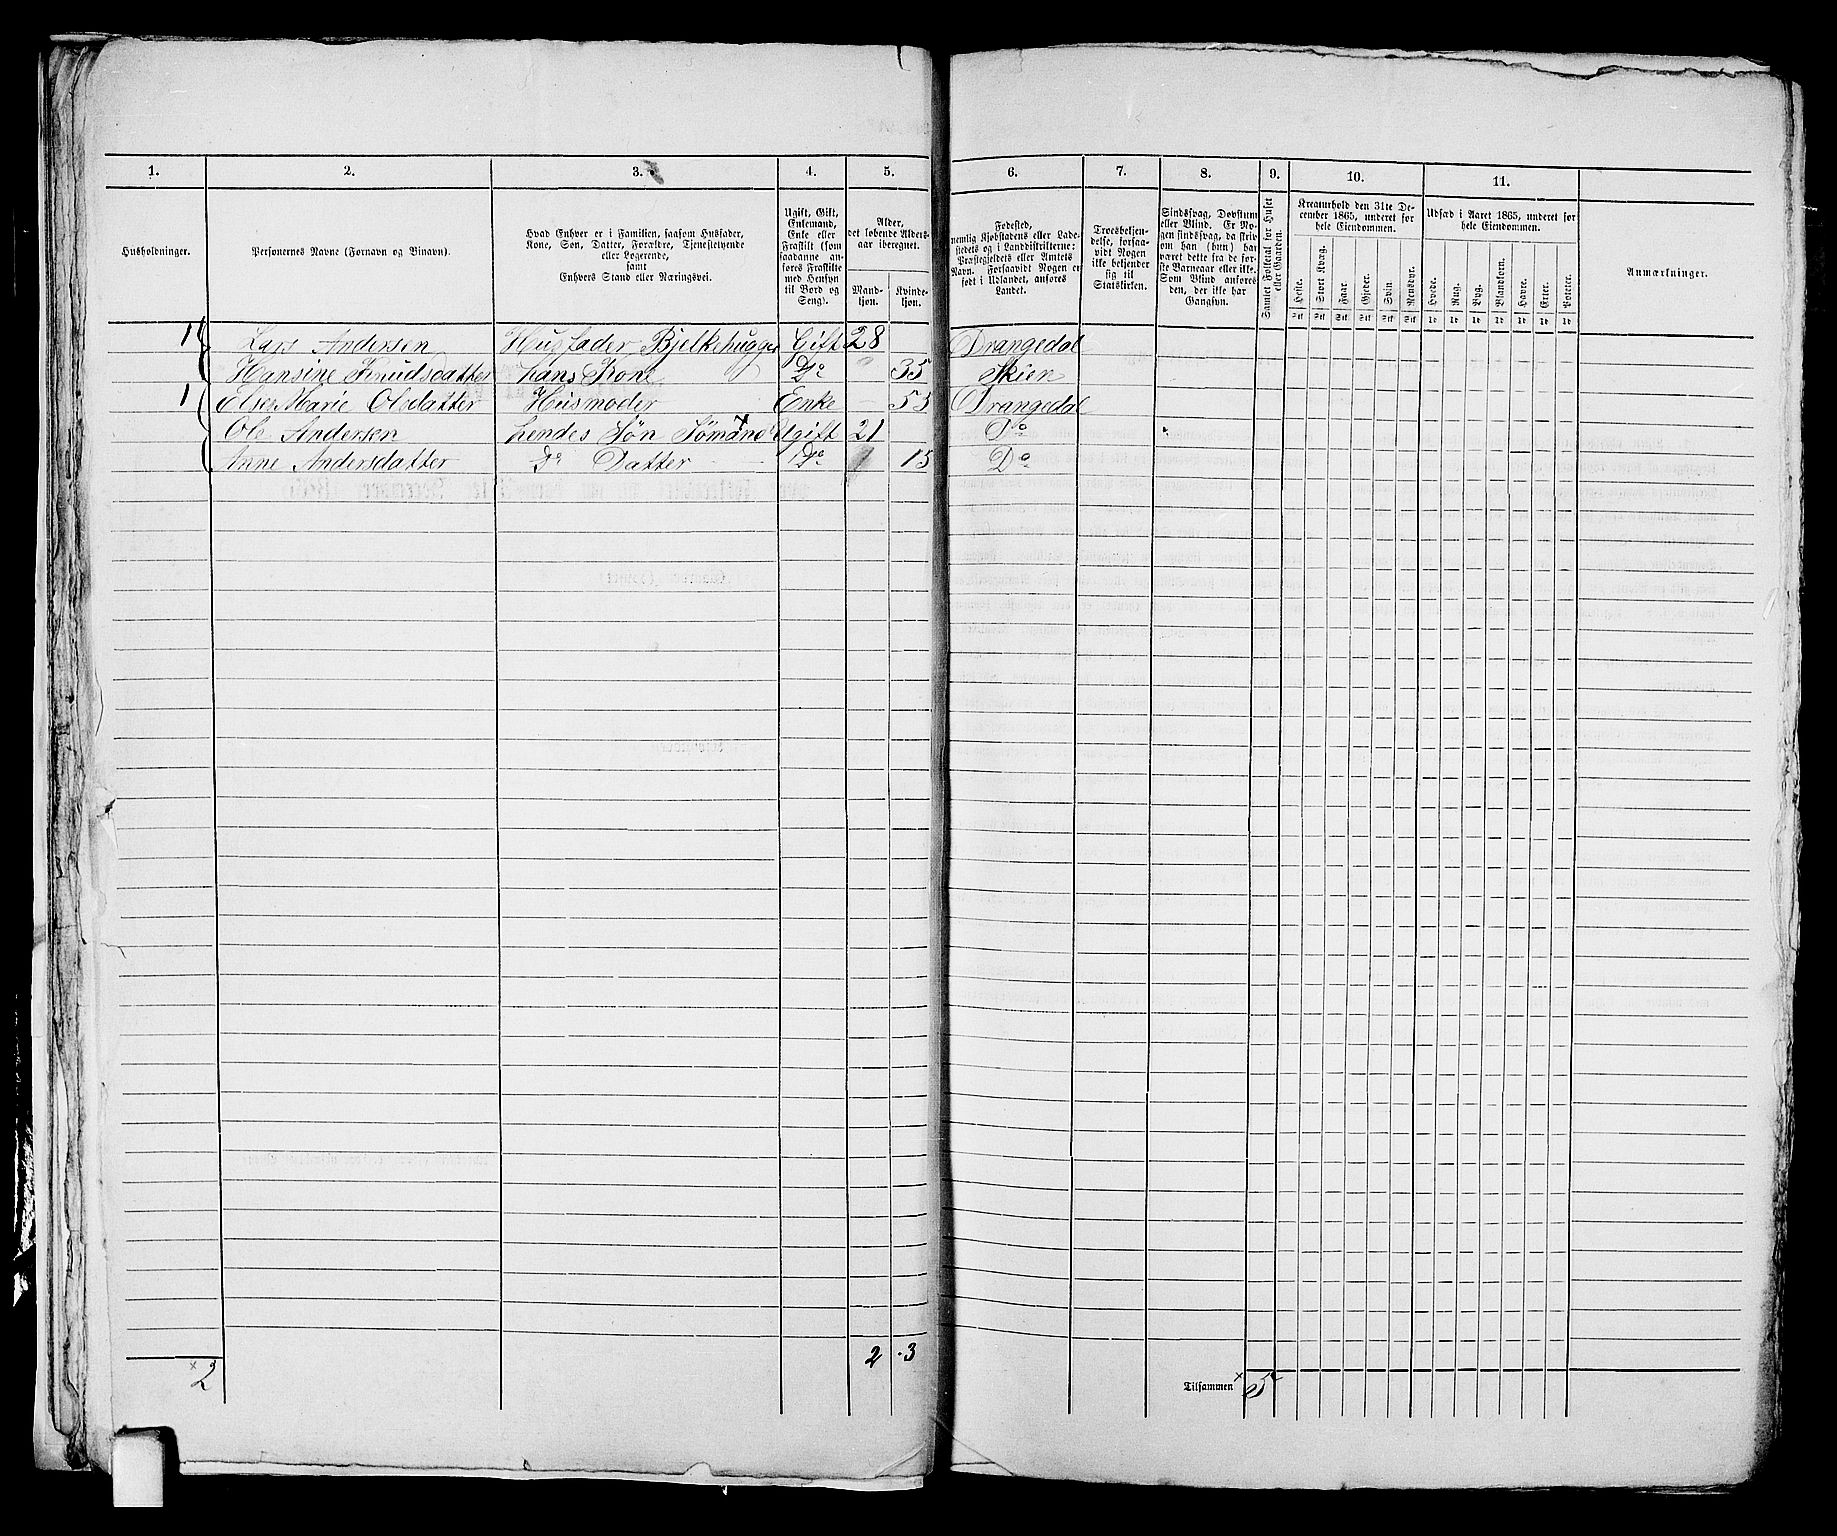 1. 2. 3. 4. 5. 6. 7. 8. 9. 10. 11.
Husholdninger.
Personernes Navne (Fornavn og Binavn).
Hvad Enhver er i Familien, saasom Husfader,
Kone, Søn, Datter, Forældre, Tjenestetyende
eller Logerende,
samt
Enhvers Stand eller Næringsvei.
Ugift, Gift,
Enkemand,
Enke eller
Fraskilt (som
saadanne an-
føres Fraskilte
med Hensyn
til Bord og
Seng).
Alder,
det løbende Alders-
aar iberegnet.
Mand-
kjøn.
Kvinde-
kjøn.
Fødested,
nemlig Kjøbstadens eller Lade-
stedets og i Landdistrikterne:
Præstegjeldets eller Amtets
Navn. Forsaavidt Nogen er
født i Udlandet, anføres
Landet.
Troesbekjen-
delse, forsaa-
vidt Nogen
ikke bekjender
sig til
Statskirken.
Sindssvag, Døvstum
eller Blind. Er No-
gen sindssvag, da skriv
om han (hun) har
været dette fra de for-
ste Barneaar eller ikke.
Som Blind anføres
den, der ikke har
Gangsyn.
Samlet Folketal for Huset
eller Gaarden.
Kreaturhold den 31te De-
cember 1865, underet for
hele Eiendommen.
Heste.
Stort Kvæg.
Faar.
Gjeder.
Svin
Rensdyr.
Stk Stk Stk Stk Stk Stk
Udsæd i Aaret 1865, underet for
hele Eiendommen.
Hvede.
Rug.
Byg.
Blandkorn.
Havre.
Erter.
Poteter.
Td Td Td Td Td Td Td
Anmærkninger.
1 Lars Andersen Husfader Bjelkehugger Gift 28 Drangedal
Hansine Knudsdatter hans Kone Do 35 Skien
1 Else Marie Olsdatter Husmoder Enke - 55 Drangedal
Ole Andersen hendes Søn Sömand Ugift 21 Do
Anne Andersdatter Do Datter Do 15 Do
2 2 3
Tilsammen 5